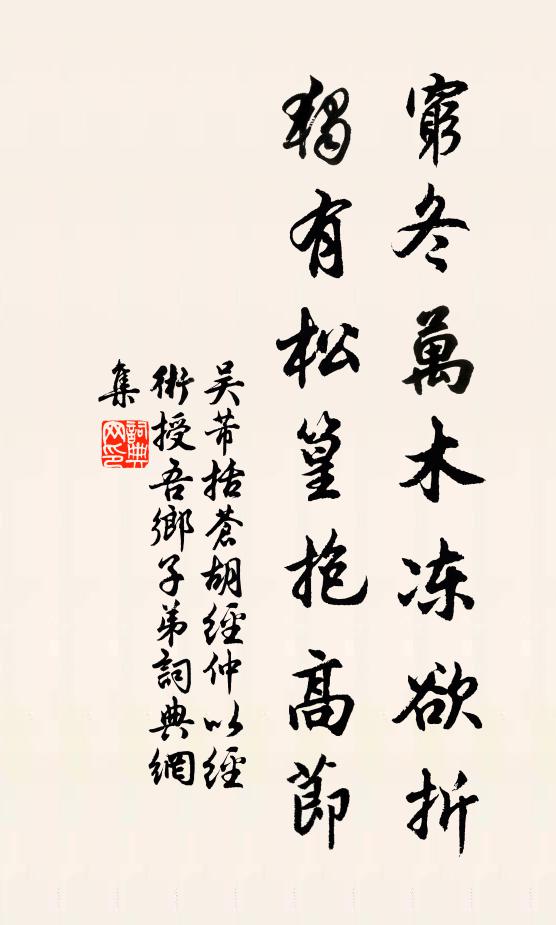 窮冬萬木冻欲折
獨有松篁抱高節
吴芾括蒼胡經仲以經
術授吾鄉子弟詞典網
集
詞典
网印